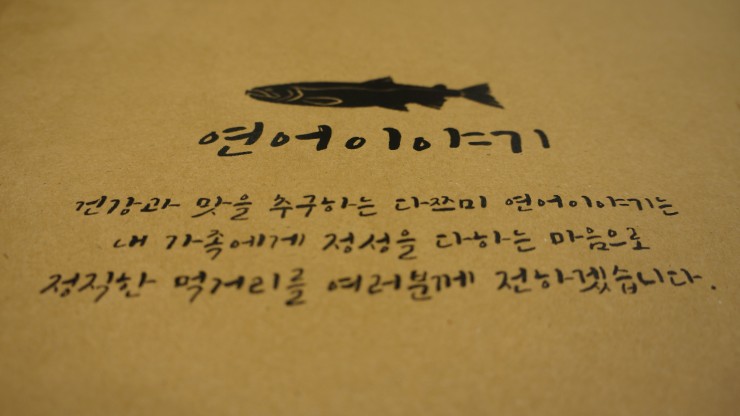 연어이야기
건강과 맛을 추구하는 다쯔미 연어이야기는
내 가족에게 정성을 다하는 마음으로
정직한 먹거리를 여러분께 전하겠습니다.